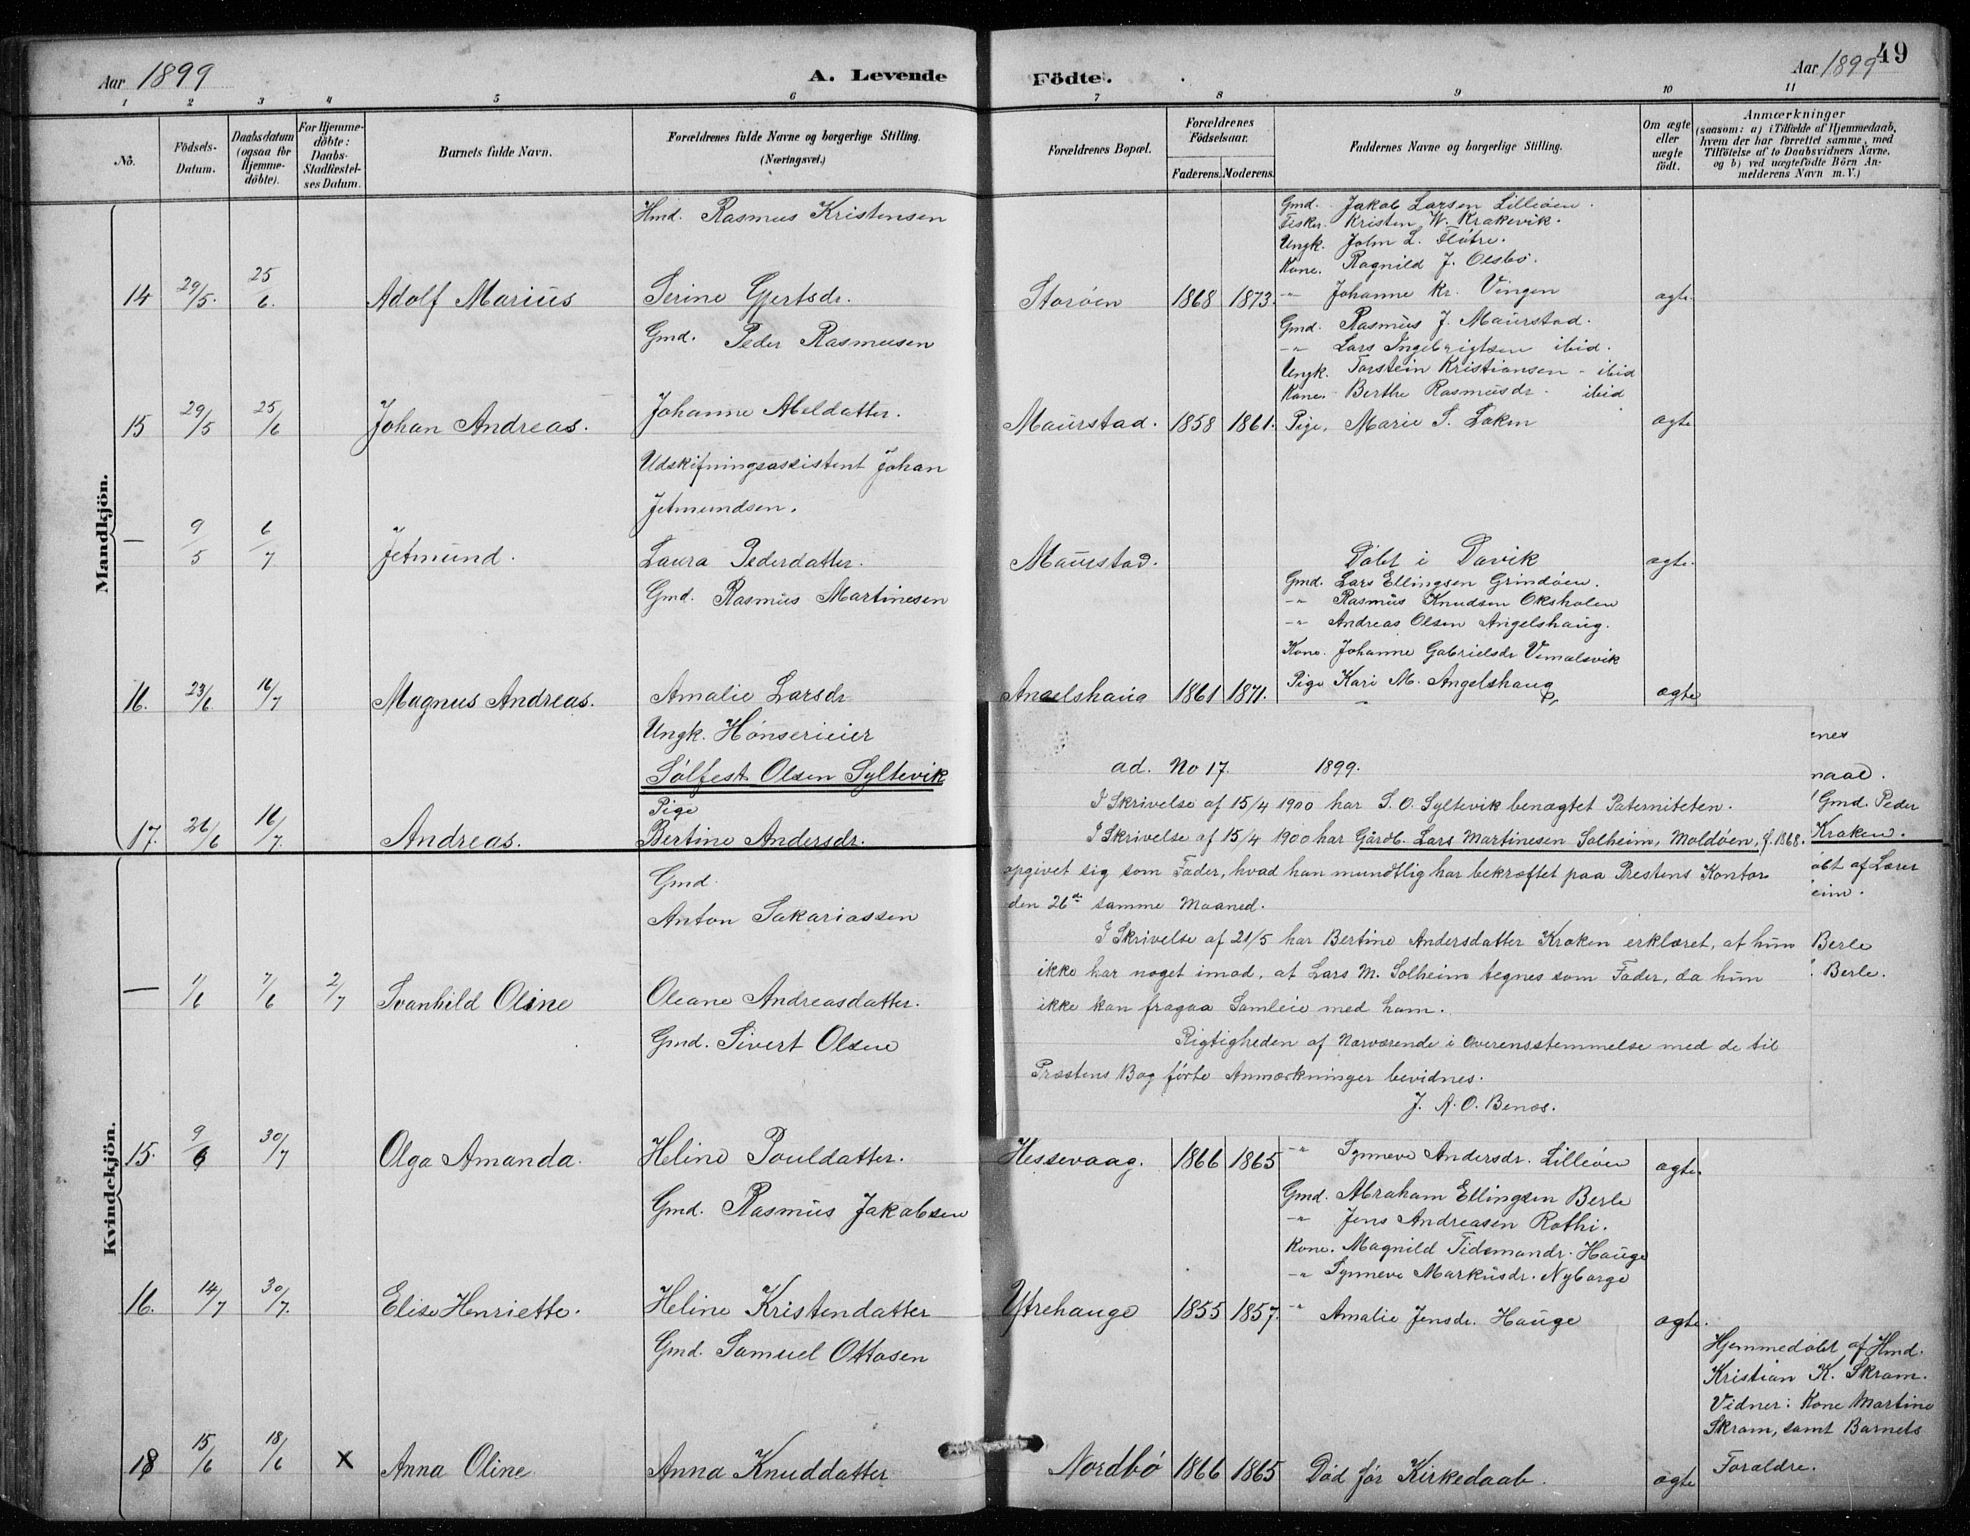 Aar 1899
A. Levende
Födte.
Aar 1899
49
1 2 3 4 5 6 7 8 9 10 11
No.
Födsels-
Datum.
Daabsdatum
(ogsaa for
Hjemme-
döbte).
For Hjemme-
döbte:
Daabs-
Stadfæstel-
ses Datum.
Barnets fulde Navn.
Forældrenes fulde Navne og borgerlige Stilling.
(Næringsvei.)
Forældrenes Bopæl.
Forældrenes
Födselsaar.
Faderens. Moderens.
Faddernes Navne og borgerlige Stilling.
Om ægte
eller
uægte
födt.
Anmærkninger
(saasom: a) i Tilfælde af Hjemmedaab,
hvem der har forrettet samme, med
Tilföielse af to Daabsvidners Navne,
og b) ved uægtefödte Börn An-
melderens Navn m. V.)
Mandkjön.
Hmd. Rasmus Kristensen
Gmd. Jakob Larsen Lilleöen.
Fisker. Kristen W. Krakevik.
Ungk. John L. Flötre.
Kone. Ragnild J. Olsbö.
14 29/5. 25/6. Adolf Marius Serine Gjertsdr. Storöen 1868 1873. -"- Johanne Kr. Vingen ægte.
Gmd. Peder Rasmussen
Gmd. Rasmus J. Maurstad.
-"- Lars Ingebrigtsen ibid.
Ungk. Torstein Kristiansen - ibid
Kone. Berthe Rasmusdr. ibid
15 29/5 25/6 Johan Andreas. Johanne Abeldatter. Maurstad. 1858 1861. Pige, Marie S. Löken ægte
Udskiftningsassistent Johan
Jetmundsen.
— 9/5 6/7 Jetmund. Laura Pederdatter. Maurstad. Döbt i Davik ægte.
Gmd. Rasmus Martinesen
Gmd. Lars Ellingsen Grindöen.
-"- Rasmus Knudsen Oksholen
-"- Andreas Olsen Angelshaug.
Kone. Johanne Gabrielsdr Vemelsvik
16. 23/6 16/7 Magnus Andreas. Amalie Larsdr. Angelshaug 1861 1871. Pige Kari M. Angelshaug ægte
Ungk. Hönserieier
Sölfest Olsen Syltevik
Pige
17. 26/6 16/7. Andreas. Bertine Andersdr.
ad. No 17. 1899.
I Skrivelse af 15/4 1900 har S. O. Syltevik benægtet Paterniteten.
I Skrivelse af 15/4 1900 har Gårdb. Lars Martinesen Solheim, Moldöen, f. 1868.
opgivet sig som Fader, hvad han mundtlig har bekræftet paa Prestens Kontor
den 26de samme Maaned.
I Skrivelse af 21/5 har Bertine Andersdatter Kroken erklæret, at hun
ikke har noget imod, at Lars M. Solheim tegnes som Fader, da hun
ikke kan fragaa Samleie med ham.
Rigtigheden af Nærværende i Overensstemmelse med de til
Præstens Bog förte Anmærkninger bevidnes.
J. A. O. Benæs.
enes
naae.
Gmd. Peder
Kraken.
öbt af Lærer
eim.
Berle
Berle.
Kvindekjön.
Gmd.
Anton Sakariassen
— 1/6 7/6 2/7 Svanhild Oline Oleane Andreasdatter.
Gmd. Sivert Olsen
15. 9/6 30/7 Olga Amanda. Heline Pouldatter. Hessevaag. 1866 1865 -"- Synneve Andersdr. Lilleöen ægte.
Gmd. Rasmus Jakobsen
Gmd. Abraham Ellingsen Berle
-"- Jens Andreasen Rothi.
Kone. Magnild Tidemandr. Hauge
-"- Synneve Markusdr. Nyborge
16. 14/7 30/7. Elise Henriette. Heline Kristendatter Ytrehauge 1855 1857. -"- Amalie Jensdr. Hauge ægte.
Gmd. Samuel Ottosen
Hjemmedöbt af Hmd.
Kristian K. Skram.
Vidner: Kone Martine
Skram, samt Barnets
18 15/6 18/6 x Anna Oline Anna Knuddatter Nordbö 1866 1865 Död för Kirkedaab. ægte Forældre.